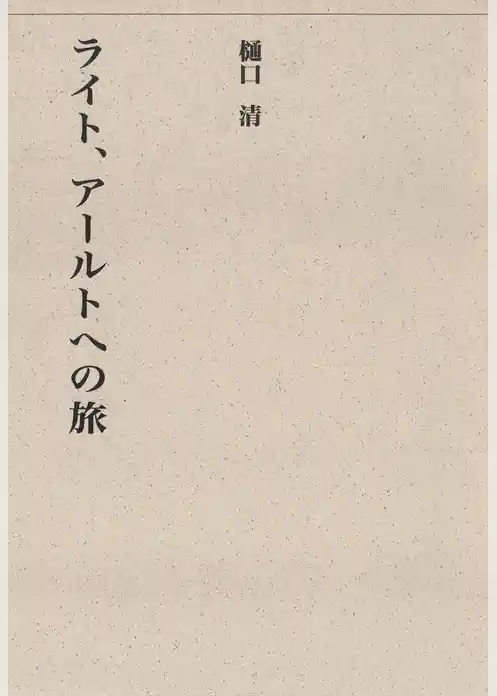 樋口 清
ライト、アールトへの旅